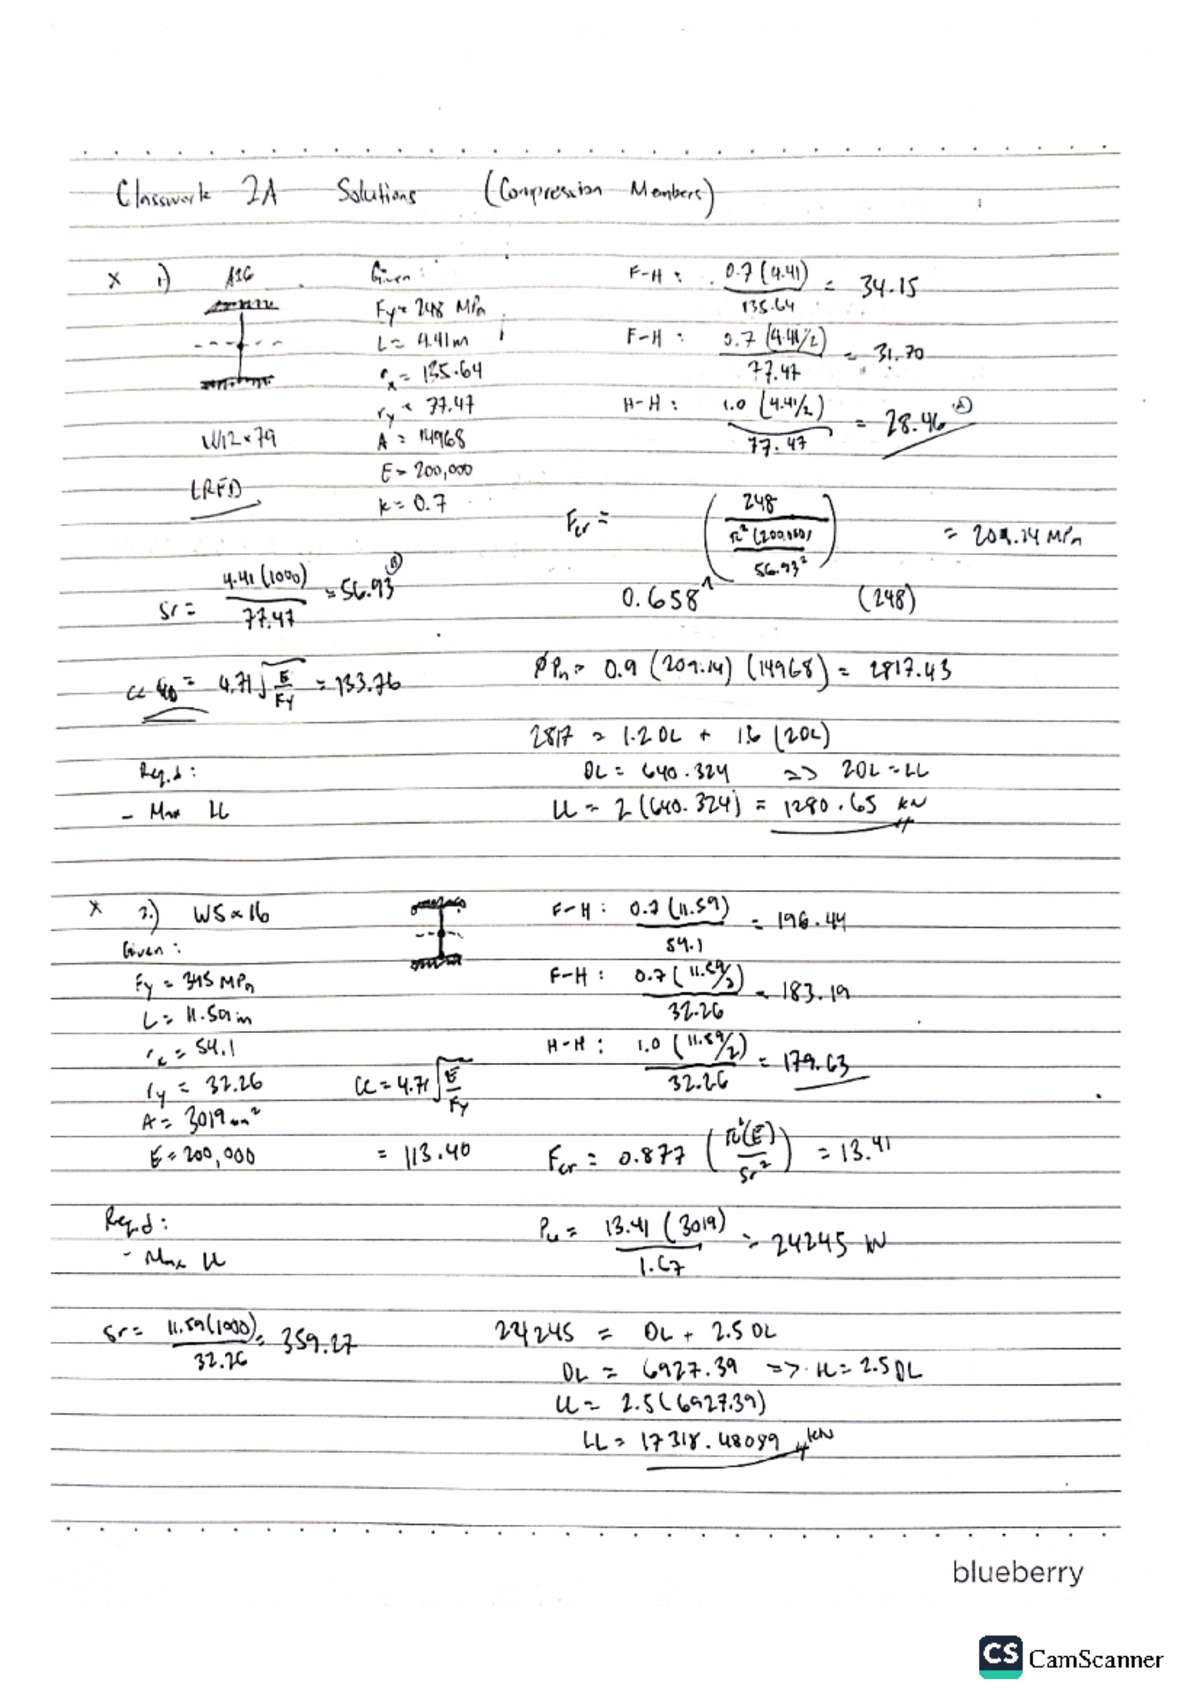 Classwork 2A Solutions (Compression Members)
x 1) A36
W12x79
LRFD
Given:
Fy = 248 MPa
L = 4.41m
rx = 135.64
ry = 77.47
A = 14968
E = 200,000
k = 0.7
F-H: 0.7(4.41) / 135.64 = 34.15
F-H: 0.7(4.41/2) / 77.47 = 31.70
H-H: 1.0(4.41/2) / 77.47 = 28.46 (A)
Sr = 4.41(1000) / 77.47 = 56.93 (B)
Fcr = 0.658^(248 / (π²(200,000) / 56.93²)) (248) = 209.14 MPa
cc = 4.71√(E/Fy) = 133.76
ØPn = 0.9(209.14)(14968) = 2817.43
Req.d:
- Max LL
2817 = 1.2DL + 1.6(2DL)
DL = 640.324 => 2DL = LL
LL = 2(640.324) = 1280.65 kN
x 2.) W5x16
Given:
Fy = 345 MPa
L = 11.59m
rx = 54.1
ry = 32.26
A = 3019mm²
E = 200,000
F-H: 0.7(11.59) / 54.1 = 196.44
F-H: 0.7(11.59/2) / 32.26 = 183.19
H-H: 1.0(11.59/2) / 32.26 = 179.63
CC = 4.71√(E/Fy)
= 113.40
Fcr = 0.877(π²(E) / Sr²) = 13.41
Req.d:
- Max LL
Pu = 13.41(3019) / 1.67 = 24245 kN
Sr = 11.59(1000) / 32.26 = 359.27
24245 = DL + 2.5DL
DL = 6927.39 => LL = 2.5DL
LL = 2.5(6927.39)
LL = 17318.48089 kN
blueberry
CS CamScanner